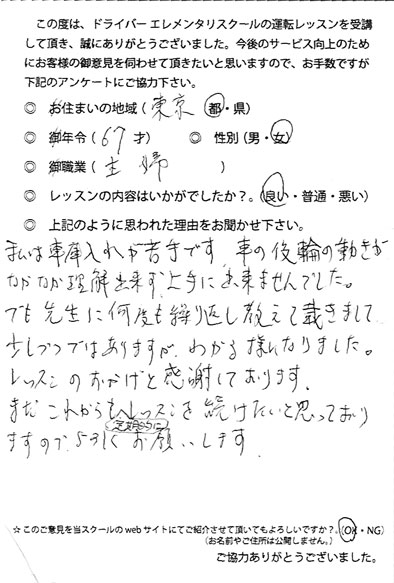 この度は、ドライバー エレメンタリスクールの運転レッスンを受講
して頂き、誠にありがとうございました。今後のサービス向上のため
にお客様の御意見を伺わせて頂きたいと思いますので、お手数ですが
下記のアンケートにご協力下さい。
◎ お住まいの地域（東京 都・県）
◎ 御年令（67 才） ◎ 性別（男・女）
◎ 御職業（主婦 ）
◎ レッスンの内容はいかがでしたか？。（良い・普通・悪い）
◎ 上記のように思われた理由をお聞かせ下さい。
私は車庫入れが苦手です。車の後輪の動きが
なかなか理解出来ず上手に出来ませんでした。
でも先生に何度も繰り返し教えて戴きまして
少しづつではありますが、わかる様になりました。
レッスンのおかげと感謝しております。
まだこれからもレッスンを続けたいと思っており
定期的に
ますので、よろしくお願いします。
☆このご意見を当スクールのwebサイトにてご紹介させて頂いてもよろしいですか？。（OK・NG）
（お名前やご住所は公開しません。）
ご協力ありがとうございました。